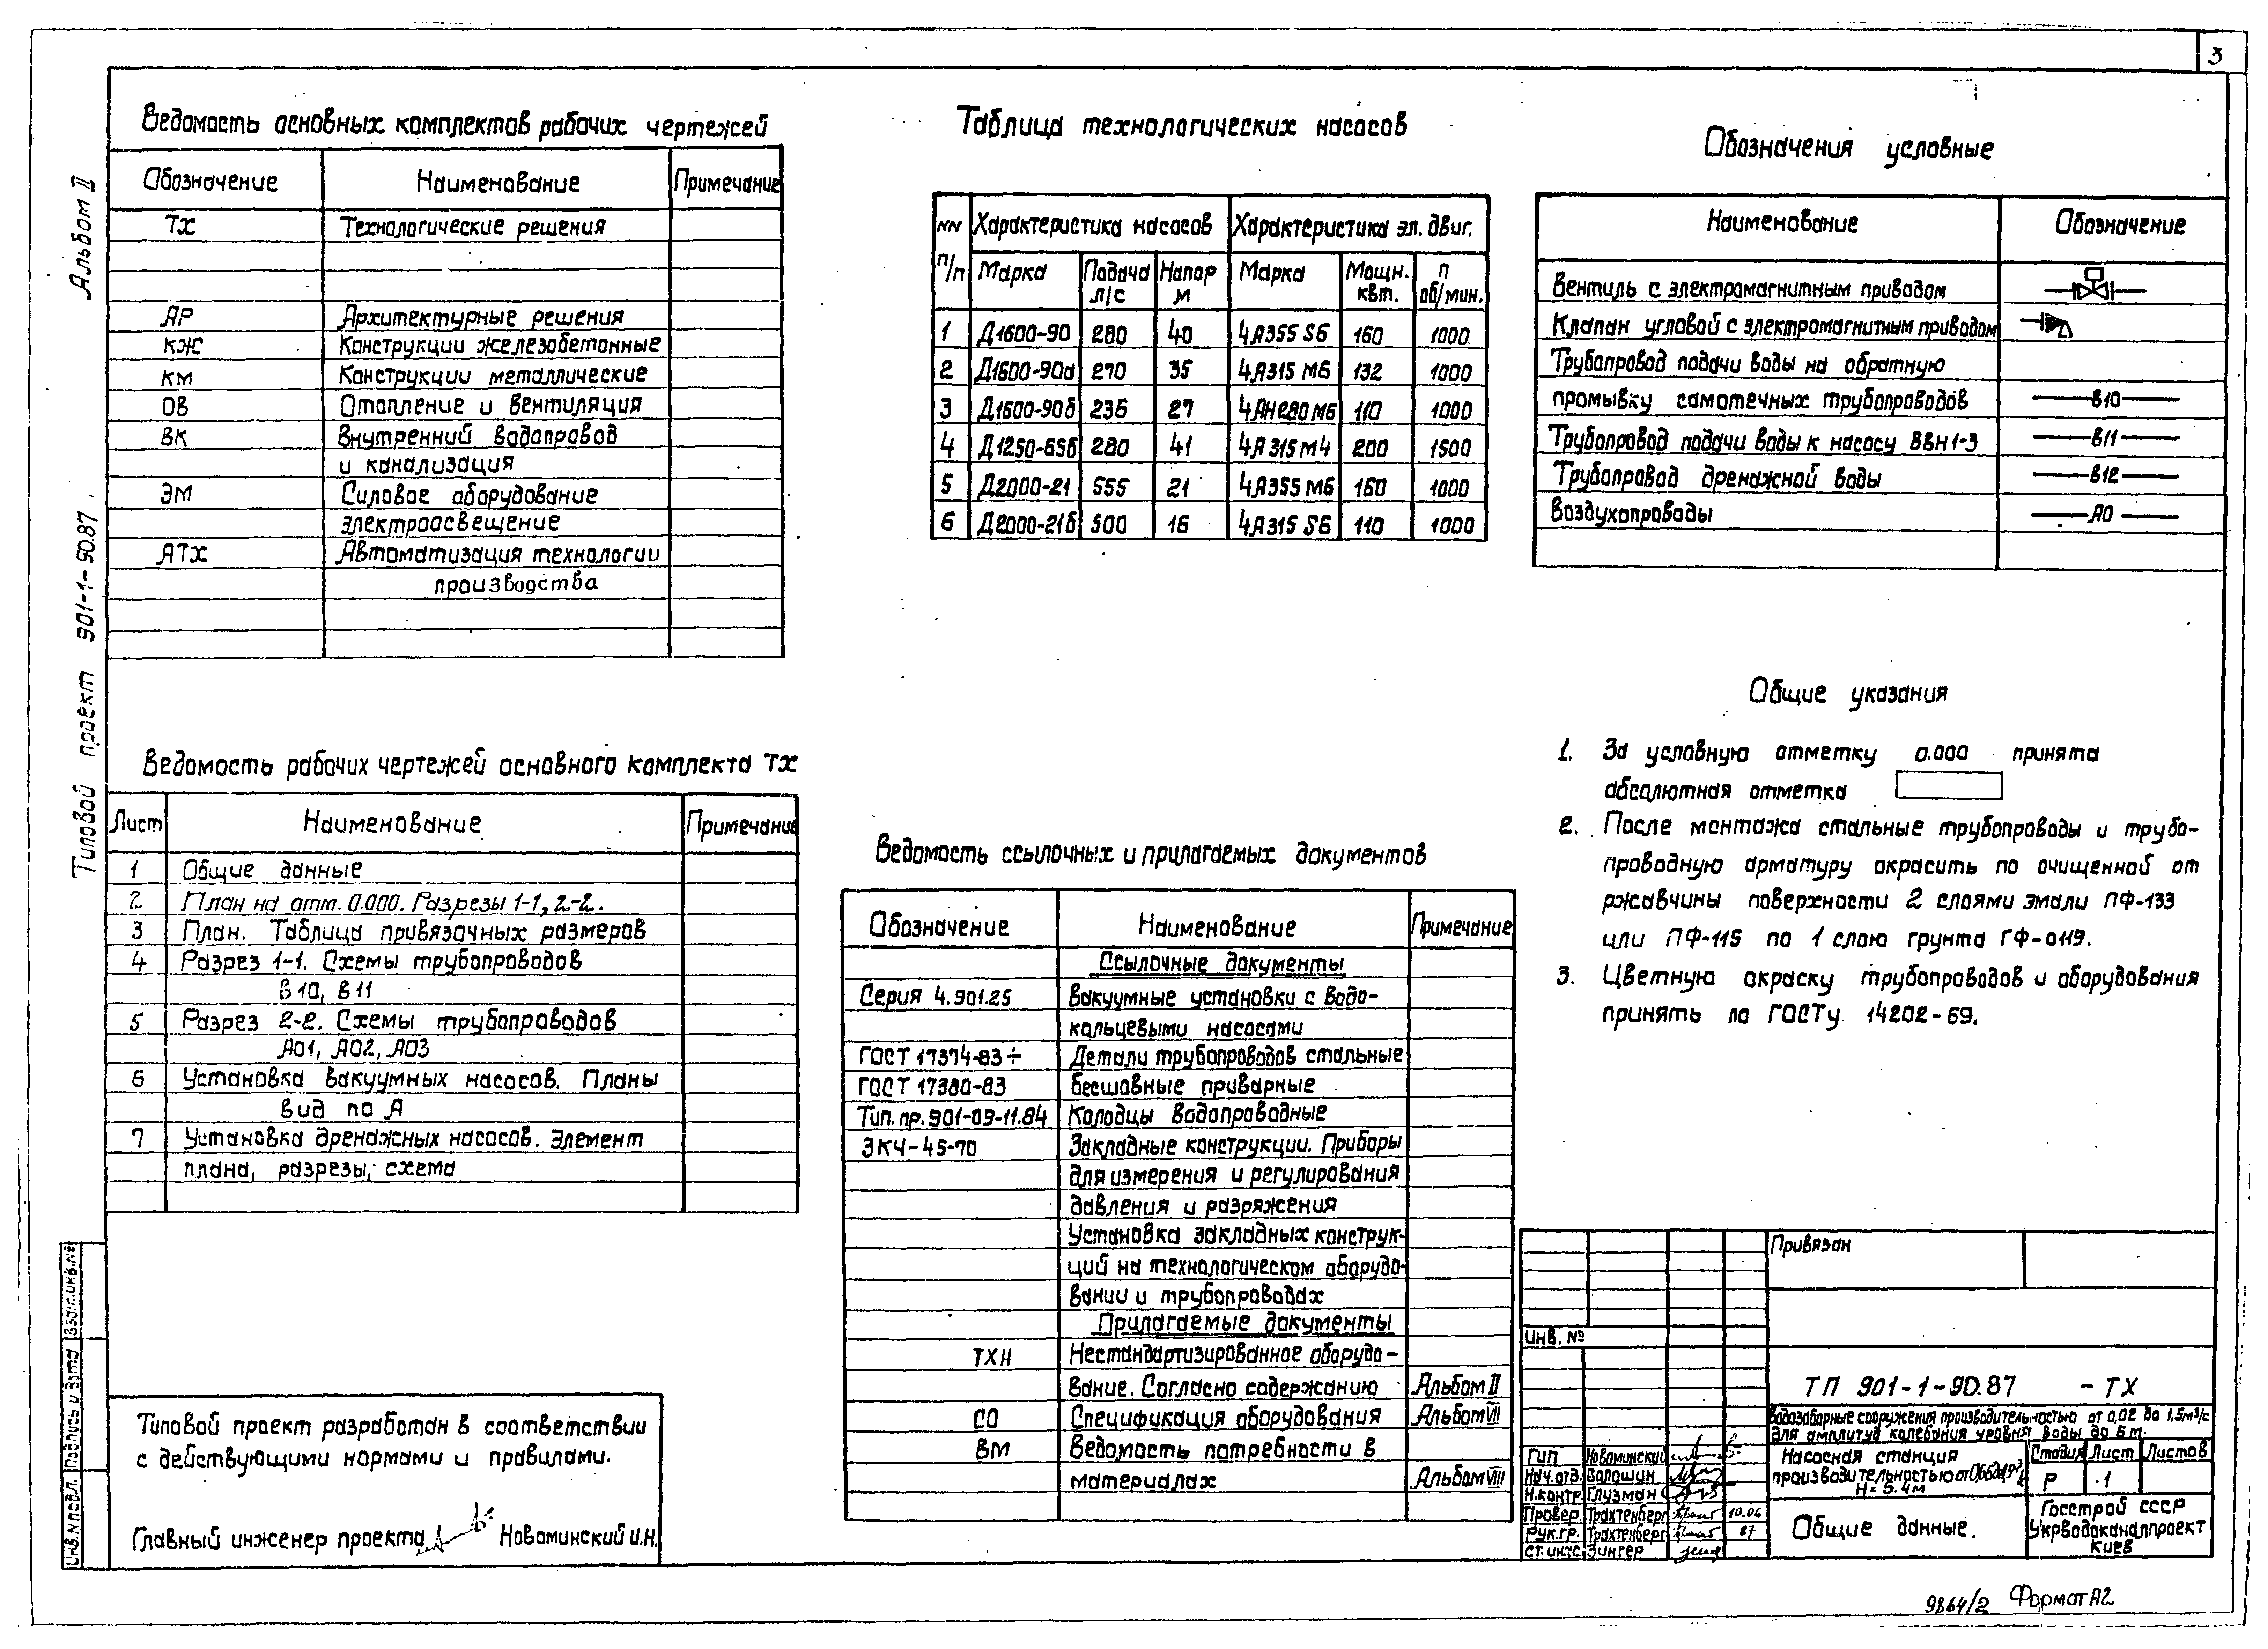 3
Альбом II
Типовой проект 901-1-90.87
Ведомость основных комплектов рабочих чертежей
Обозначение Наименование Примечание
ТХ Технологические решения
АР Архитектурные решения
КЖ Конструкции железобетонные
КМ Конструкции металлические
ОВ Отопление и вентиляция
ВК Внутренний водопровод
и канализация
ЭМ Силовое оборудование
электроосвещение
АТХ Автоматизация технологии
производства
Ведомость рабочих чертежей основного комплекта ТХ
Лист Наименование Примечание
1 Общие данные
2 План на отм. 0.000. Разрезы 1-1, 2-2.
3 План. Таблица привязочных размеров
4 Разрез 1-1. Схемы трубопроводов
В10, В11
5 Разрез 2-2. Схемы трубопроводов
А01, А02, А03
6 Установка вакуумных насосов. Планы
вид по А
7 Установка дренажных насосов. Элемент
плана, разрезы, схема
Типовой проект разработан в соответствии
с действующими нормами и правилами.
Главный инженер проекта Новоминский И.Н.
Инв.N подл. Подпись и дата Взам.инв.№
Таблица технологических насосов
NN п/п Характеристика насосов Характеристика эл. двиг.
Марка Подача л/с Напор м Марка Мощн. квт. п об/мин.
1 Д1600-90 280 40 4А355 S6 160 1000
2 Д1600-90а 270 35 4А315 М6 132 1000
3 Д1600-90б 236 27 4АН280 М6 110 1000
4 Д1250-65б 280 41 4А315 М4 200 1500
5 Д2000-21 555 21 4А355 М6 160 1000
6 Д2000-21б 500 16 4А315 S6 110 1000
Ведомость ссылочных и прилагаемых документов
Обозначение Наименование Примечание
Ссылочные документы
Серия 4.901.25 Вакуумные установки с водо-
кольцевыми насосами
ГОСТ 17374-83÷ Детали трубопроводов стальные
ГОСТ 17380-83 бесшовные приварные
Тип. пр. 901-09-11.84 Колодцы водопроводные
ЗКЧ-45-70 Закладные конструкции. Приборы
для измерения и регулирования
давления и разряжения
Установка закладных конструк-
ций на технологическом оборудо-
вании и трубопроводах
Прилагаемые документы
ТХН Нестандартизированное оборудо-
вание. Согласно содержанию Альбом II
СО Спецификация оборудования Альбом VII
ВМ Ведомость потребности в
материалах Альбом VIII
Обозначения условные
Наименование Обозначение
Вентиль с электромагнитным приводом
Клапан угловой с электромагнитным приводом
Трубопровод подачи воды на обратную
промывку самотечных трубопроводов В10
Трубопровод подачи воды к насосу ВВН1-3 В11
Трубопровод дренажной воды В12
Воздухопроводы А0
Общие указания
1. За условную отметку 0.000 принята
абсолютная отметка
2. После монтажа стальные трубопроводы и трубо-
проводную арматуру окрасить по очищенной от
ржавчины поверхности 2 слоями эмали ПФ-133
или ПФ-115 по 1 слою грунта ГФ-0119.
3. Цветную окраску трубопроводов и оборудования
принять по ГОСТу 14202-69.
Привязан
Инв. №
ТП 901-1-90.87 - ТХ
Водозаборные сооружения производительностью от 0,02 до 1,5м³/с
для амплитуд колебания уровня воды до 6 м.
ГИП Новоминский
Нач.отд. Волошин
Н.контр. Глузман
Провер. Трахтенберг 10.06
Рук.гр. Трахтенберг 87
Ст.инж. Зингер
Насосная станция
производительностью от
Н= 5.4м
Стадия Лист Листов
Р 1
Общие данные.
Госстрой СССР
Укрводоканалпроект
Киев
9864/2 Формат А2